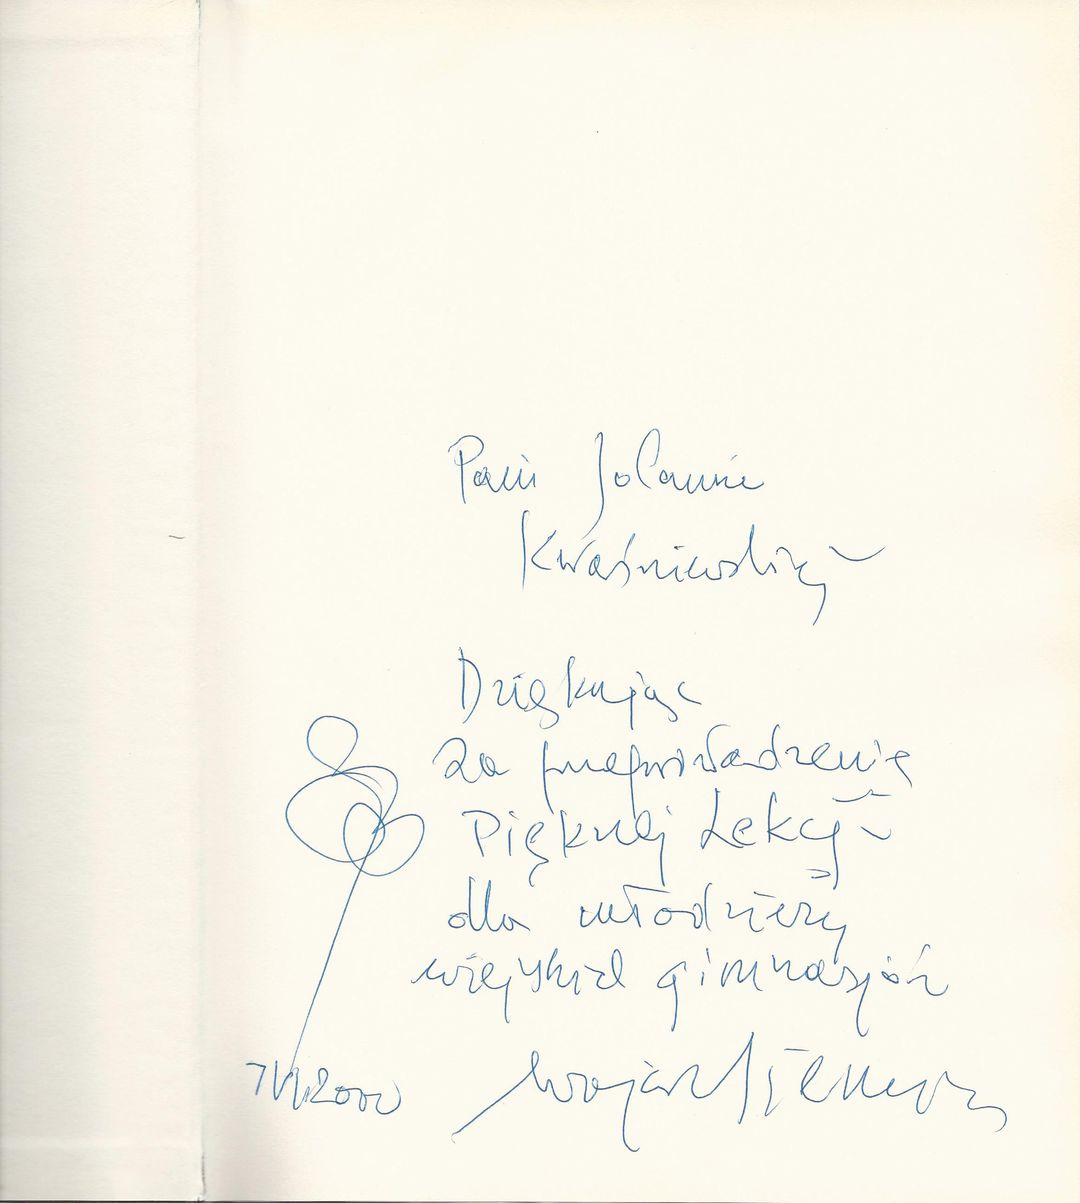 Pani Jolannie
Kwaśniewskiej
Dziękując
za przeprowadzenie
Pięknej Lekcji
dla młodzieży
wiejskich gimnazjów
2000
Wojciech Siemion